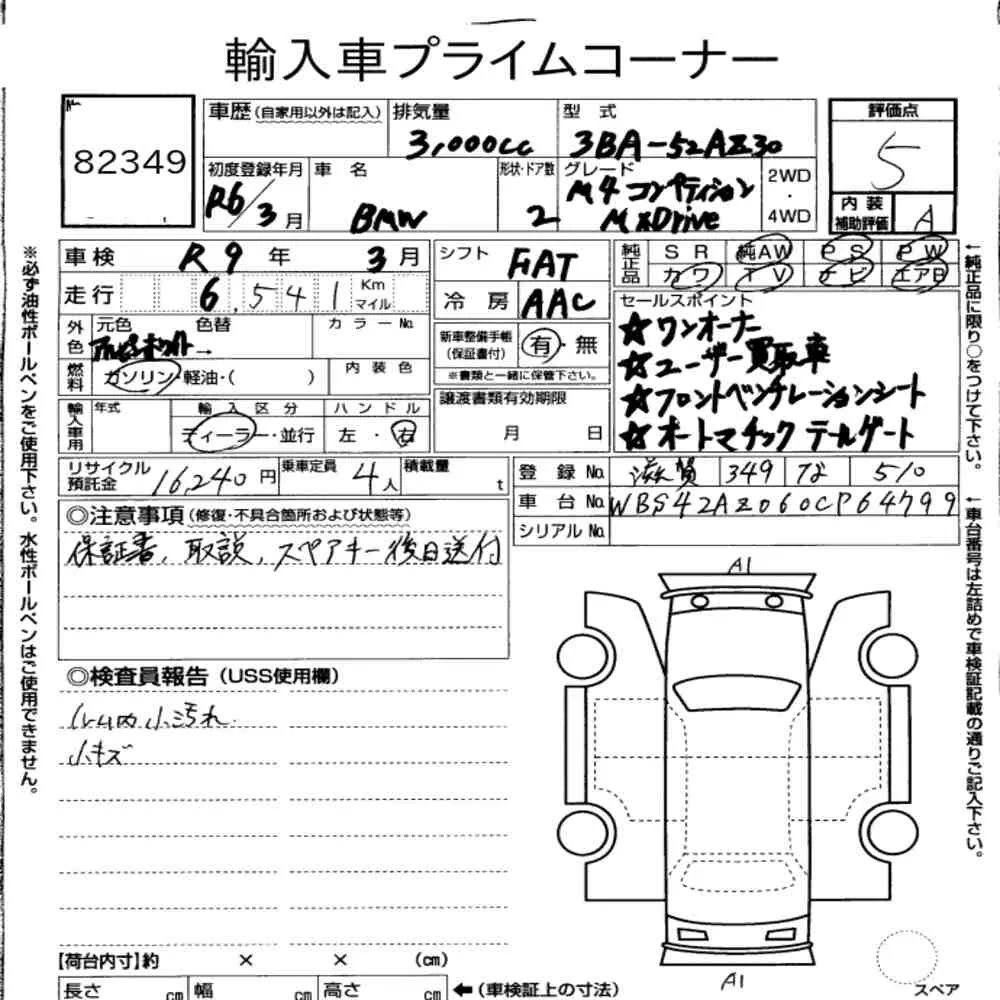 輸入車プライムコーナー
82349
車歴(自家用以外は記入) 排気量 型式 評価点
3,000cc 3BA-52AZ30 5
初度登録年月 車名 形状・ドア数 グレード 2WD・4WD 内装補助評価
R6/3月 BMW 2 M4 コンペティション A
MxDrive
車検 R9年 3月 シフト FAT 純正品 SR 純AW PS PW
カワ TV ナビ エアB
走行 6,541 Km マイル 冷房 AAC セールスポイント
☆ワンオーナー
☆ユーザー買取車
☆フロントベンチレーションシート
☆オートマチック テールゲート
外色 元色 色替 カラーNo. 新車整備手帳(保証書付) 有・無
アルピンホワイト → ※書類と一緒に保管下さい。
燃料 ガソリン・軽油・( ) 内装色
輸入車用 年式 輸入区分 ハンドル 譲渡書類有効期限
ディーラー・並行 左・右 月 日
リサイクル預託金 16,240円 乗車定員 4人 積載量 t 登録No. 滋賀 349 な 510
車台No. WBS42AZ060CP64799
シリアルNo.
◎注意事項(修復・不具合箇所および状態等)
保証書、取説、スペアキー後日送付
◎検査員報告(USS使用欄)
ルーム内小汚れ
小キズ
A1
A1
スペア
【荷台内寸】約 × × (cm)
長さ cm 幅 cm 高さ cm ←(車検証上の寸法)
※必ず油性ボールペンをご使用下さい。水性ボールペンはご使用できません。
←純正品に限り○をつけて下さい。
←車台番号は左詰めで車検証記載の通りご記入下さい。